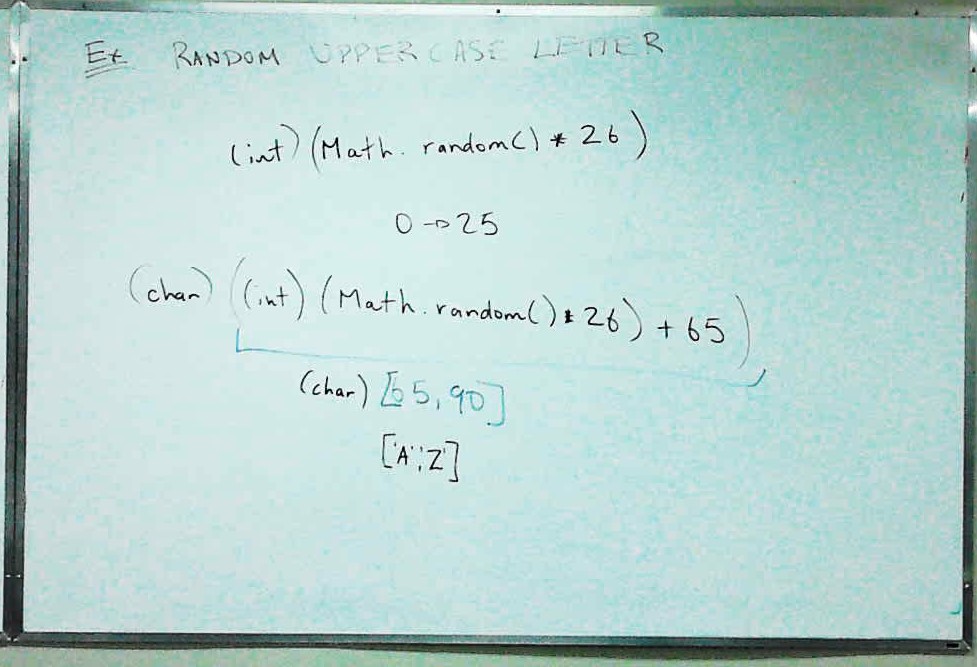 Ex RANDOM UPPERCASE LETTER
(int) (Math.random() * 26)
0 → 25
(char) ((int) (Math.random() * 26) + 65)
(char) [65, 90]
['A', 'Z']